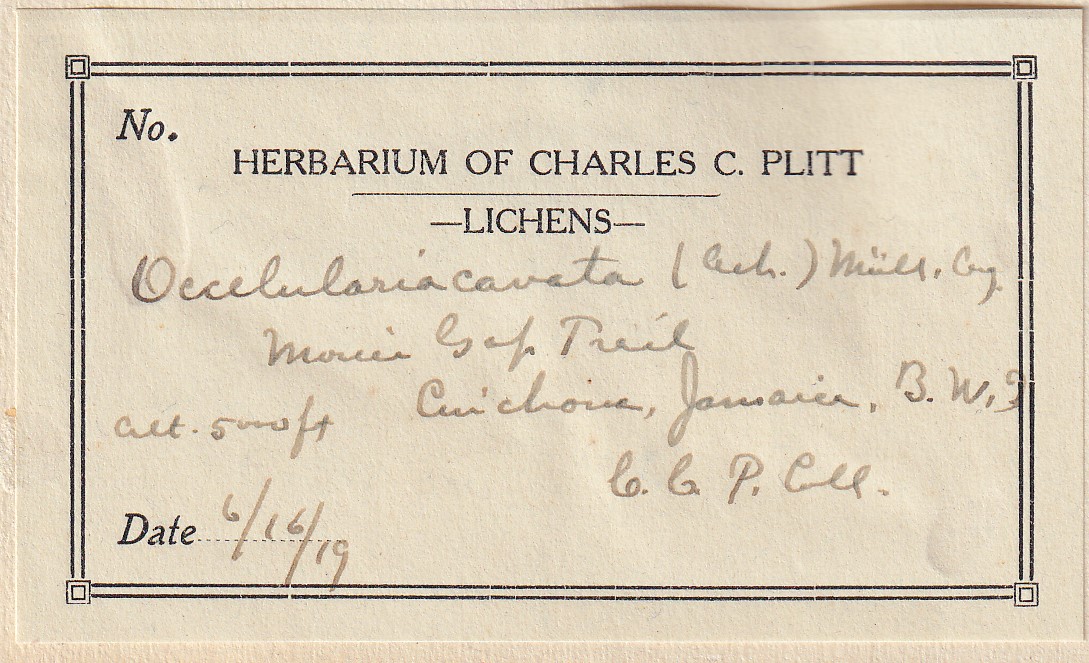 No.
HERBARIUM OF CHARLES C. PLITT
—LICHENS—
Ocellularia cavata (Ach.) Müll. Arg.
Morce's Gap Trail
Cinchona, Jamaica, B.W.I
Alt. 5000 ft
C. C. P. Coll.
Date 6/16/19